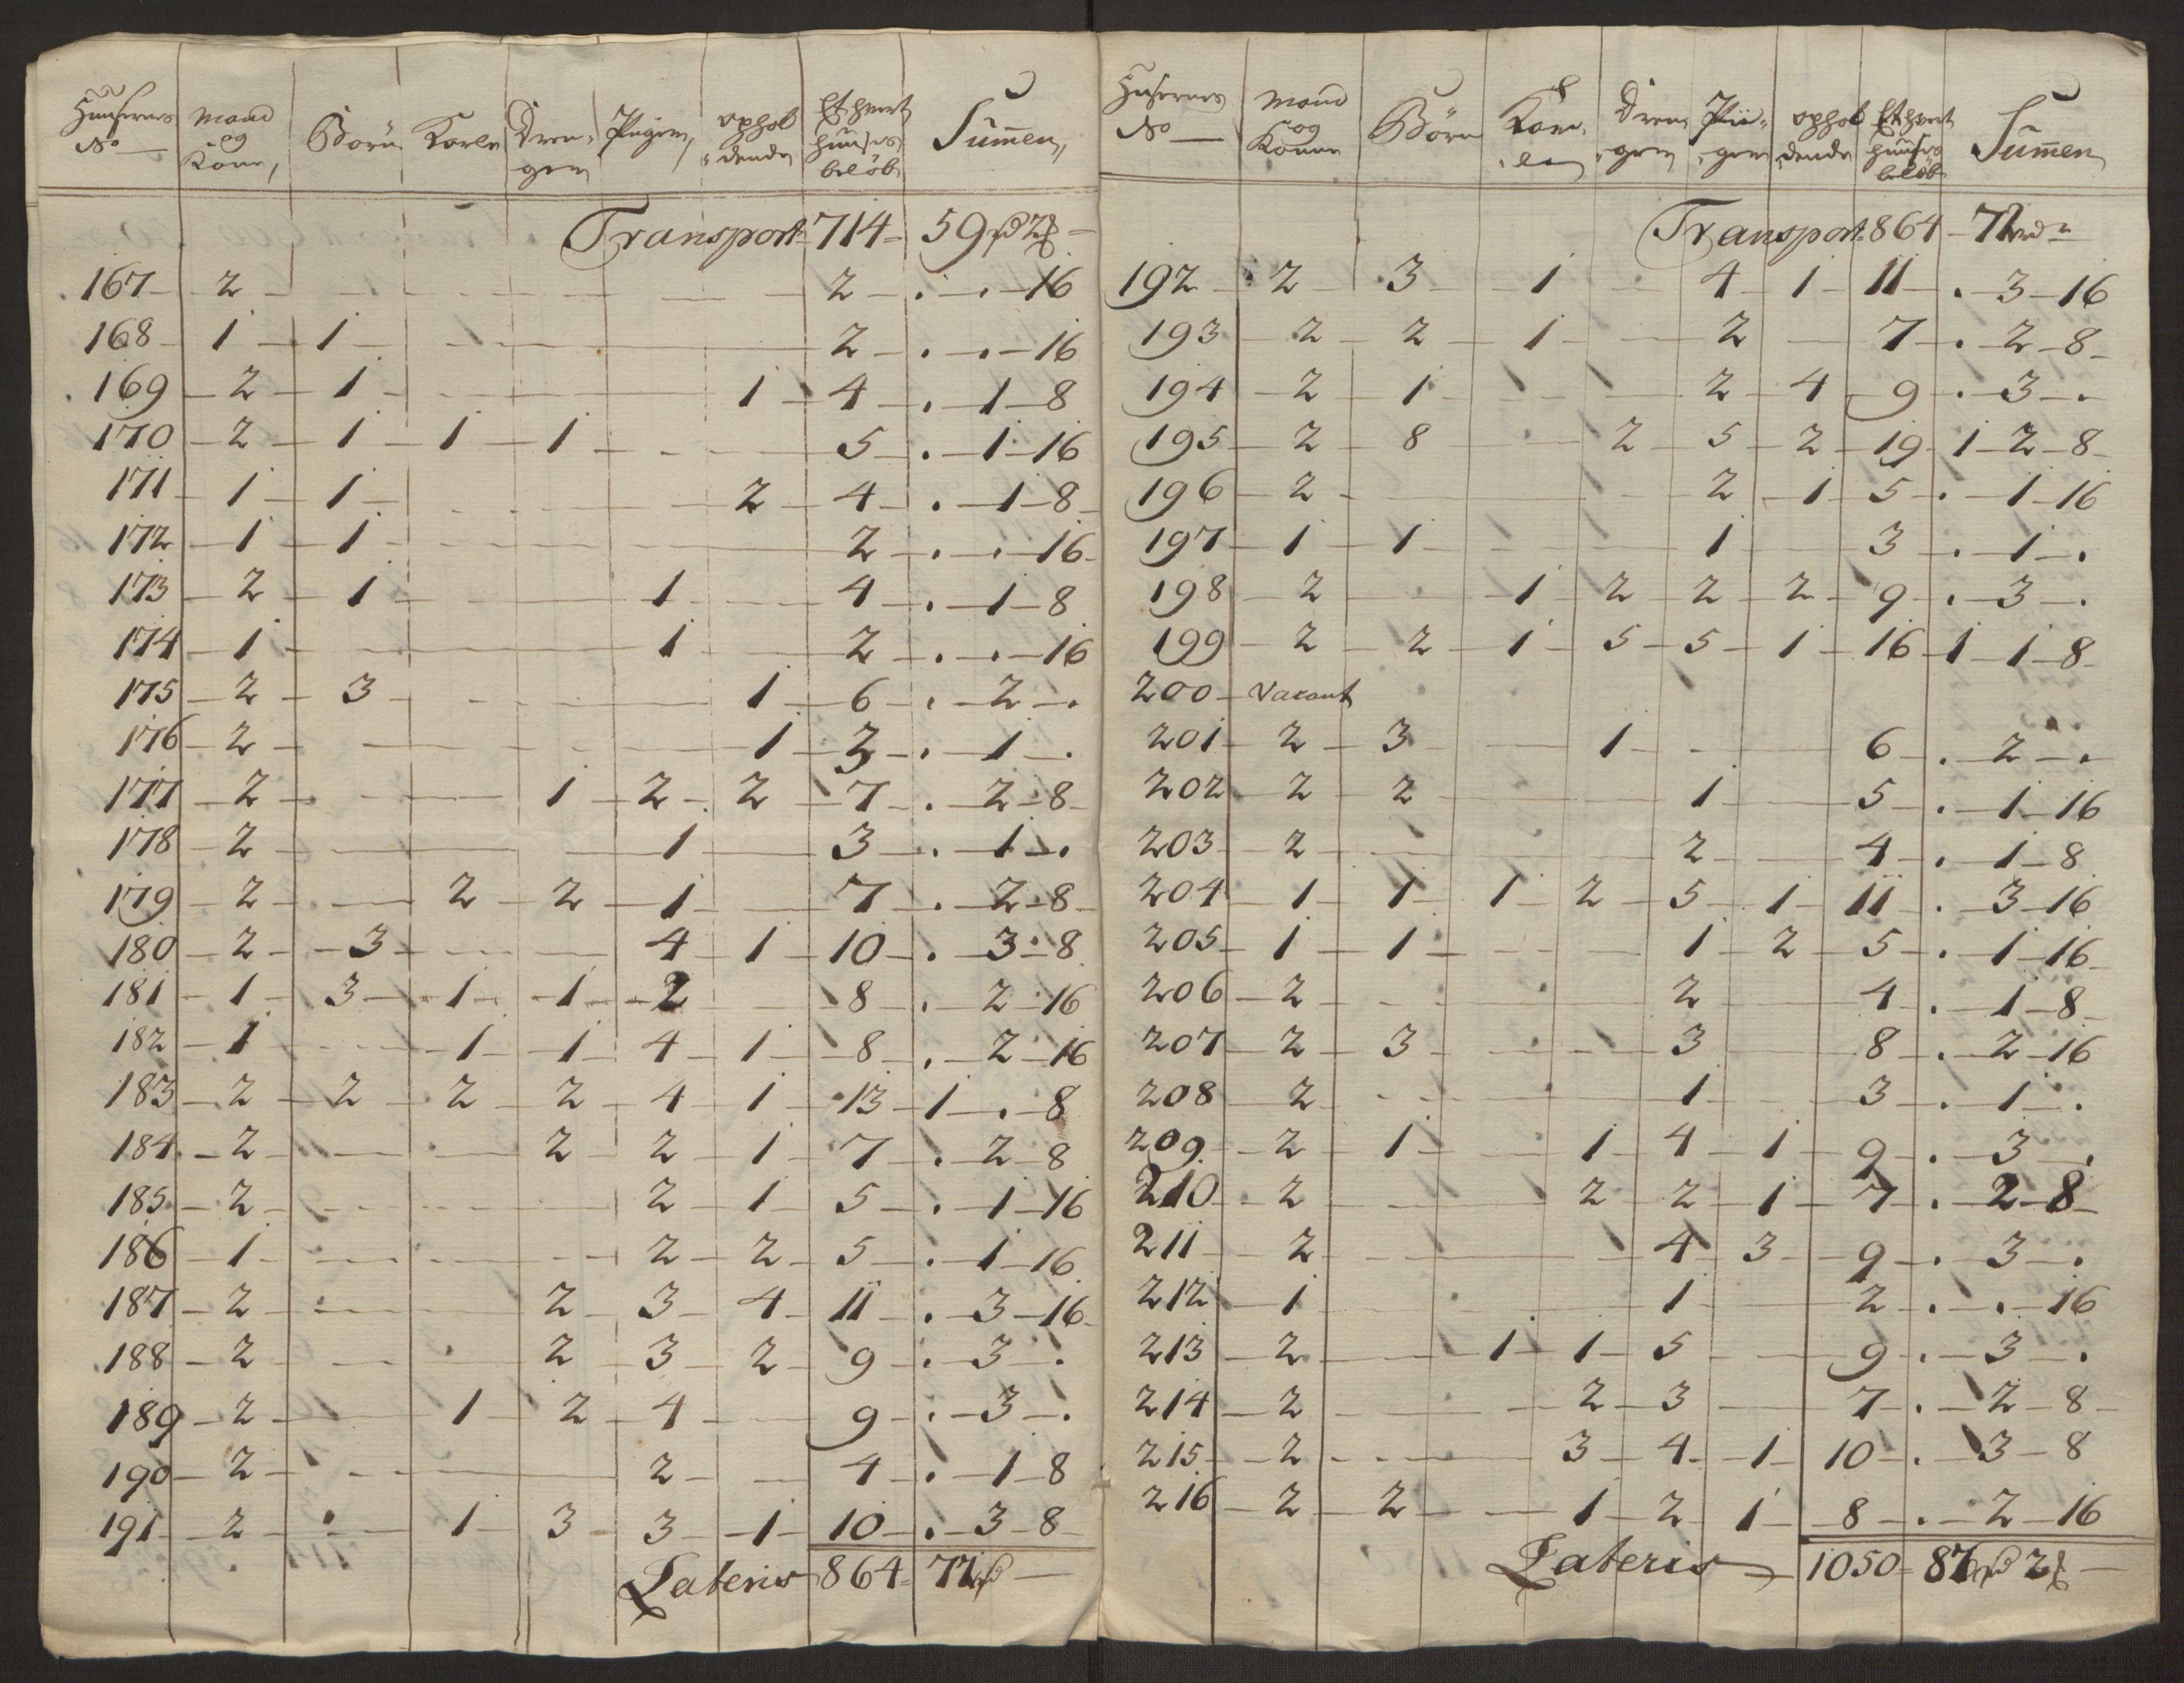 Huusernes No — Mand og Kone, Börn Karle Dren- gen Piigen, ophol- dende Ethvert huuses belöb Summen,
Transport 714 - 59 rd 2 ß —
167 - 2 - - - - - 2 - . - . - 16
168 - 1 - 1 - - - - 2 - . - . - 16
169 - 2 - 1 - - - 1 - 4 - . - 1 - 8
170 - 2 - 1 - 1 - 1 - - 5 - . - 1 - 16
171 - 1 - 1 - - - 2 - 4 - . - 1 - 8
172 - 1 - 1 - - - - 2 - . - . - 16
173 - 2 - 1 - - 1 - 4 - . - 1 - 8
174 - 1 - - - 1 - 2 - . - . - 16
175 - 2 - 3 - - - 1 - 6 - . - 2 - .
176 - 2 - - - - 1 - 3 - . - 1 - .
177 - 2 - - 1 - 2 - 2 - 7 - . - 2 - 8
178 - 2 - - - 1 - 3 - . - 1 - .
179 - 2 - - 2 - 2 - 1 - 7 - . - 2 - 8
180 - 2 - 3 - - 4 - 1 - 10 - . - 3 - 8
181 - 1 - 3 - 1 - 1 - 2 - 8 - . - 2 - 16
182 - 1 - - 1 - 1 - 4 - 1 - 8 - . - 2 - 16
183 - 2 - 2 - 2 - 2 - 4 - 1 - 13 - 1 - . - 8
184 - 2 - - 2 - 2 - 1 - 7 - . - 2 - 8
185 - 2 - - - 2 - 1 - 5 - . - 1 - 16
186 - 1 - - - 2 - 2 - 5 - . - 1 - 16
187 - 2 - - 2 - 3 - 4 - 11 - . - 3 - 16
188 - 2 - - 2 - 3 - 2 - 9 - . - 3 - .
189 - 2 - - 1 - 2 - 4 - 9 - . - 3 - .
190 - 2 - - - 2 - - 4 - . - 1 - 8
191 - 2 - - 1 - 3 - 3 - 1 - 10 - . - 3 - 8
Lateris 864 - 72 rd —
Huusernes No — Mand og Konne Börn Kar- le Dren- gen Pii- gen ophol- dende Ethvert huuses belöb Summen
Transport 864 - 72 rd -
192 - 2 - 3 - 1 - 4 - 1 - 11 - . - 3 - 16
193 - 2 - 2 - 1 - 2 - 7 - . - 2 - 8
194 - 2 - 1 - - 2 - 4 - 9 - . - 3 - .
195 - 2 - 8 - 2 - 5 - 2 - 19 - 1 - 2 - 8
196 - 2 - - - 2 - 1 - 5 - . - 1 - 16
197 - 1 - 1 - - 1 - 3 - . - 1 - .
198 - 2 - - 1 - 2 - 2 - 2 - 9 - . - 3 - .
199 - 2 - 2 - 1 - 5 - 5 - 1 - 16 - 1 - 1 - 8
200 - Vacant
201 - 2 - 3 - 1 - - 6 - . - 2 - .
202 - 2 - 2 - - 1 - 5 - . - 1 - 16
203 - 2 - - - 2 - 4 - . - 1 - 8
204 - 1 - 1 - 1 - 2 - 5 - 1 - 11 - . - 3 - 16
205 - 1 - 1 - - 1 - 2 - 5 - . - 1 - 16
206 - 2 - - - 2 - 4 - . - 1 - 8
207 - 2 - 3 - - 3 - 8 - . - 2 - 16
208 - 2 - - - 1 - 3 - . - 1 - .
209 - 2 - 1 - 1 - 4 - 1 - 9 - . - 3 - .
210 - 2 - - 2 - 2 - 1 - 7 - . - 2 - 8
211 - 2 - - - 4 - 3 - 9 - . - 3 - .
212 - 1 - - - 1 - 2 - . - . - 16
213 - 2 - - 1 - 1 - 5 - 9 - . - 3 - .
214 - 2 - - 2 - 3 - 7 - . - 2 - 8
215 - 2 - - 3 - 4 - 1 - 10 - . - 3 - 8
216 - 2 - 2 - 1 - 2 - 1 - 8 - . - 2 - 16
Lateris 1050 - 87 rd 2 ß —